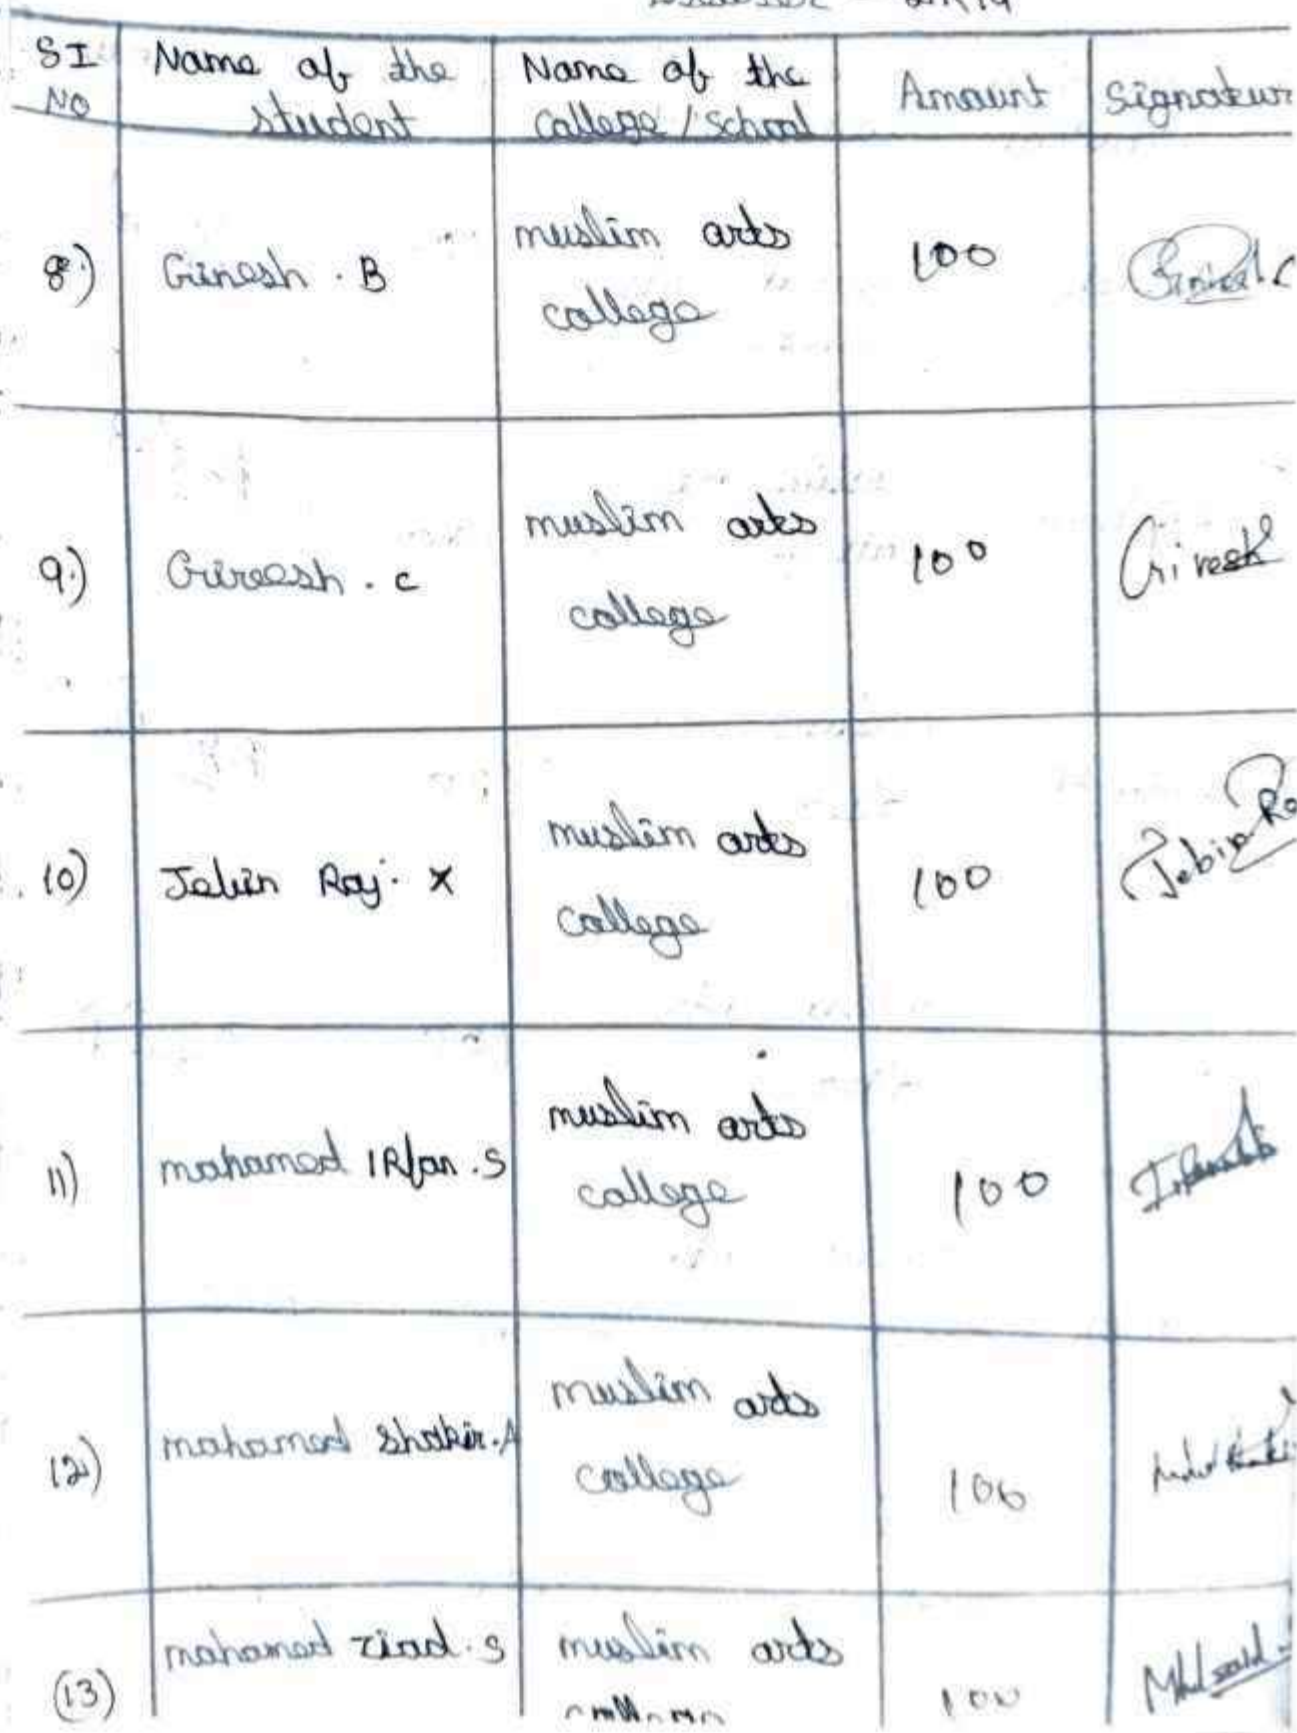 SI NO | Name of the student | Name of the college / school | Amount | Signatur
8.) | Ginesh . B | muslim arts college | 100
9.) | Gireesh . c | muslim arts college | 100 | Giresh
10) | Jebin Raj. X | muslim arts college | 100 | Jebin Ra
11) | mohamed IRfan . S | muslim arts college | 100
12) | mohamed Shakir. A | muslim arts college | 100
(13) | mohamed ziad . S | muslim arts | 100